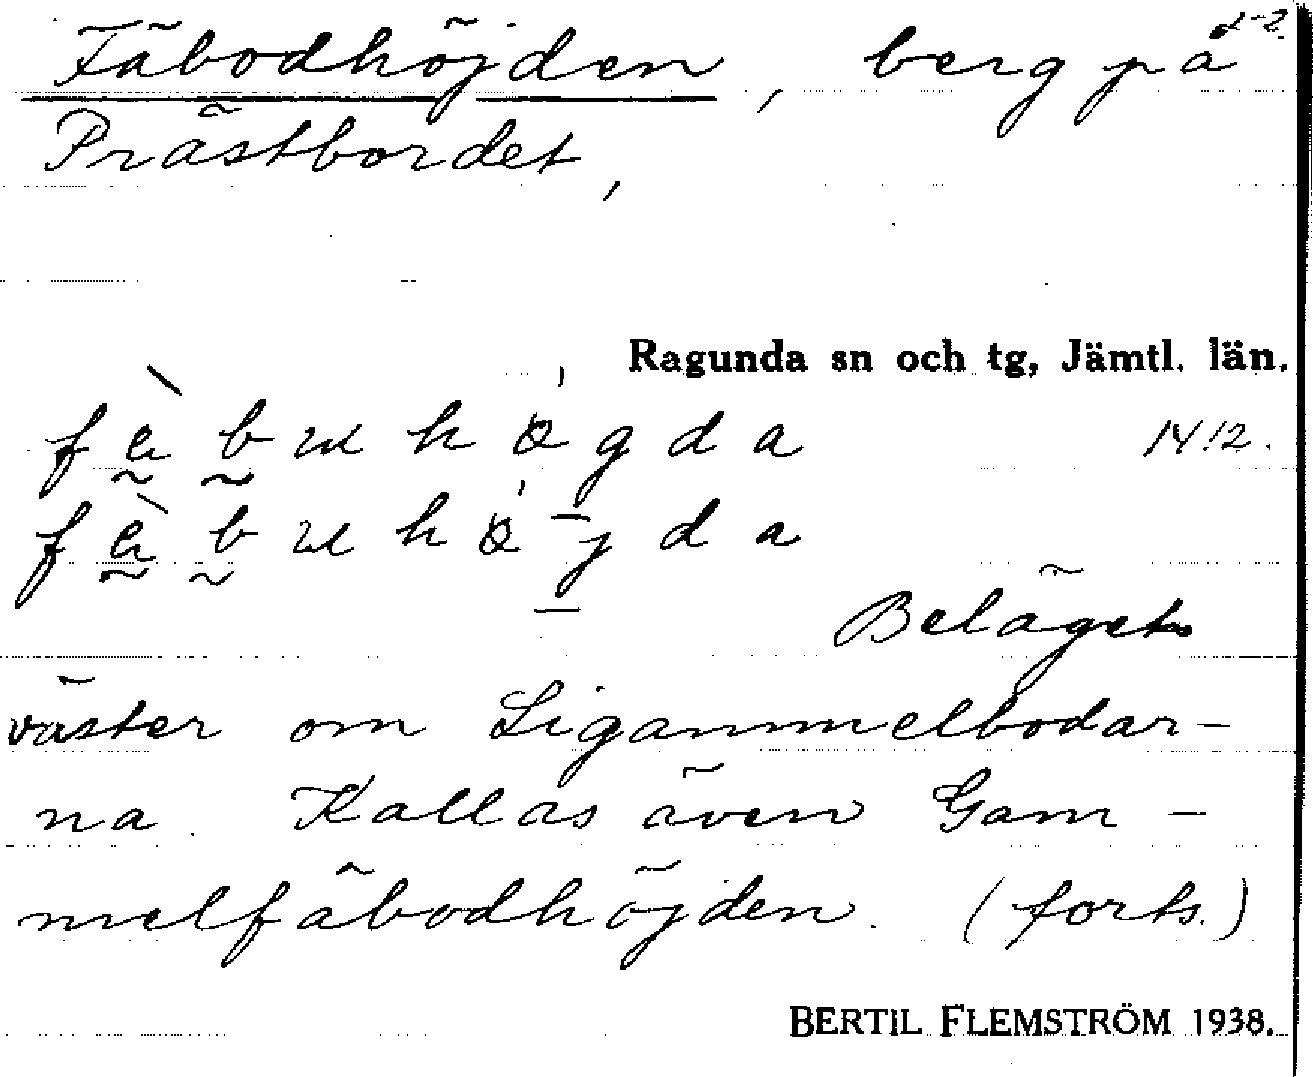 d-2.
Fäbodhöjden, berg på
Prästbordet,
Ragunda sn och tg, Jämtl. län.
1412.
Beläget
väster om Ligammelbodar-
na. Kallas även Gam-
melfäbodhöjden. (forts.)
BERTIL FLEMSTRÖM 1938.